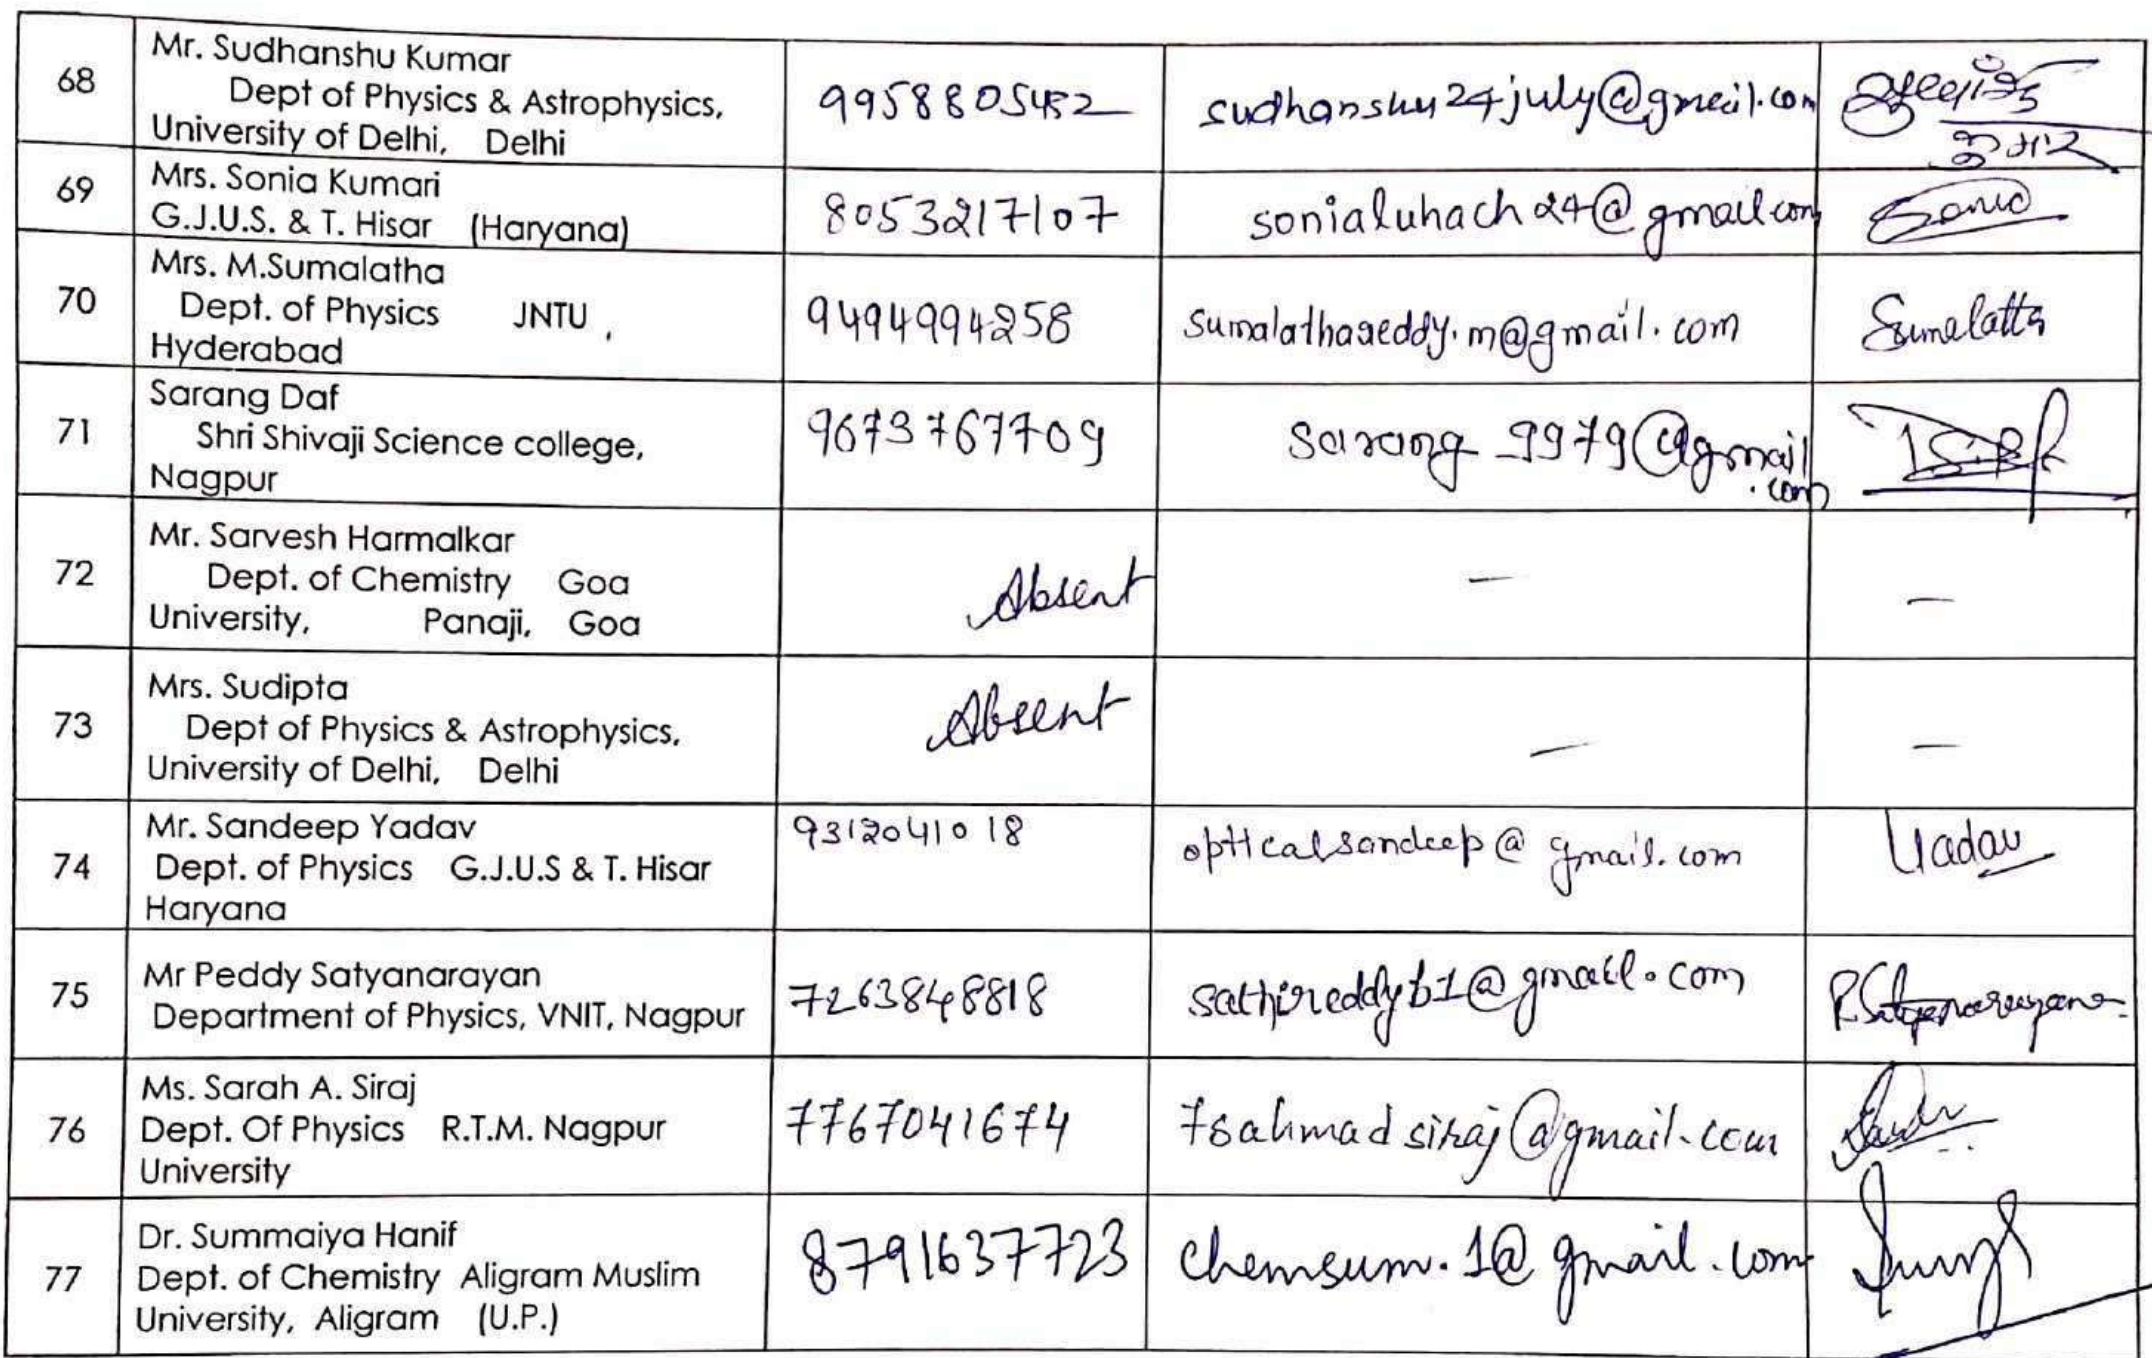 68
Mr. Sudhanshu Kumar
Dept of Physics & Astrophysics,
University of Delhi, Delhi
9958805482
sudhanshu24july@gmail.com
कुमार
69
Mrs. Sonia Kumari
G.J.U.S. & T. Hisar (Haryana)
8053217107
sonialuhach24@gmail.com
Sonia
70
Mrs. M.Sumalatha
Dept. of Physics JNTU ,
Hyderabad
9494994258
sumalathareddy.m@gmail.com
Sumalatha
71
Sarang Daf
Shri Shivaji Science college,
Nagpur
9673767709
sarang9979@gmail
.com
72
Mr. Sarvesh Harmalkar
Dept. of Chemistry Goa
University, Panaji, Goa
Absent
–
–
73
Mrs. Sudipta
Dept of Physics & Astrophysics,
University of Delhi, Delhi
Absent
–
–
74
Mr. Sandeep Yadav
Dept. of Physics G.J.U.S & T. Hisar
Haryana
9312041018
opticalsandeep@gmail.com
Yadav
75
Mr Peddy Satyanarayan
Department of Physics, VNIT, Nagpur
7263848818
P.Satyanarayana
76
Ms. Sarah A. Siraj
Dept. Of Physics R.T.M. Nagpur
University
7767041674
7sahmadsiraj@gmail.com
77
Dr. Summaiya Hanif
Dept. of Chemistry Aligram Muslim
University, Aligram (U.P.)
8791637723
chemsum.1@gmail.com